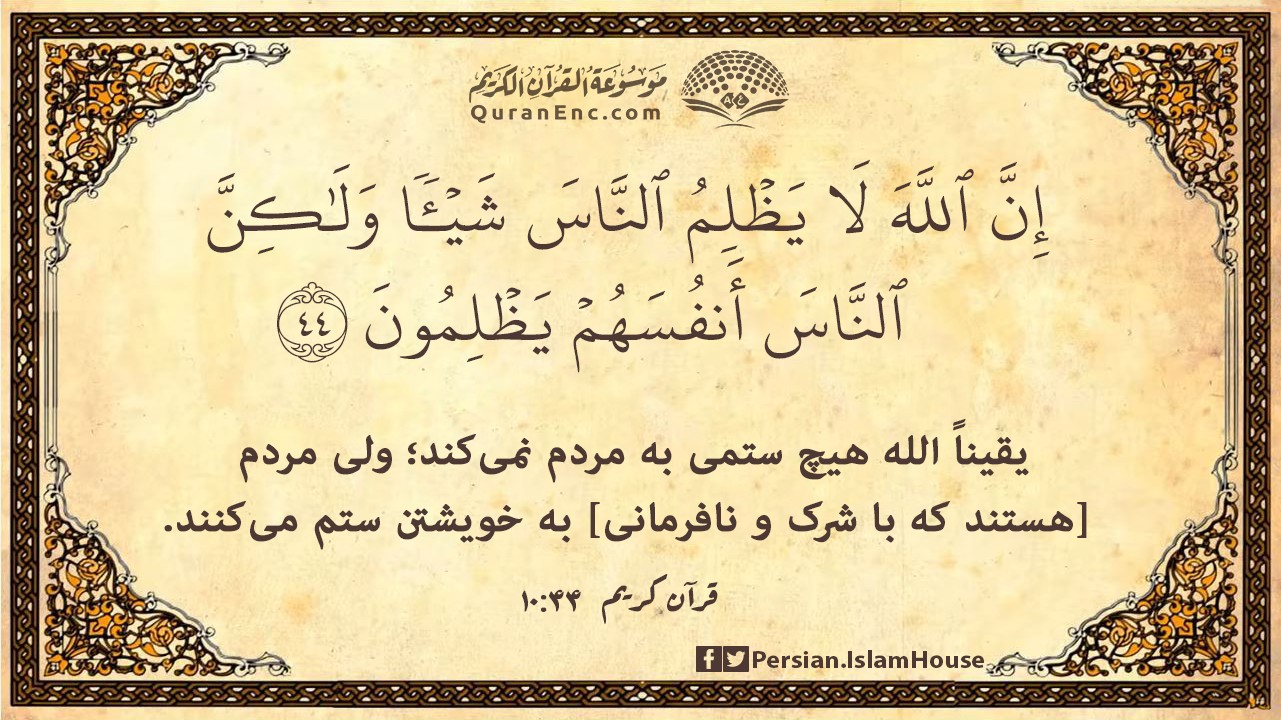 موسوعة القرآن الكريم
QuranEnc.com
إِنَّ ٱللَّهَ لَا يَظۡلِمُ ٱلنَّاسَ شَيۡـٔٗا وَلَٰكِنَّ
ٱلنَّاسَ أَنفُسَهُمۡ يَظۡلِمُونَ ٤٤
یقیناً الله هیچ ستمی به مردم نمی‌کند؛ ولی مردم
[هستند که با شرک و نافرمانی] به خویشتن ستم می‌کنند.
قرآن کریم ۱۰:۴۴
Persian.IslamHouse